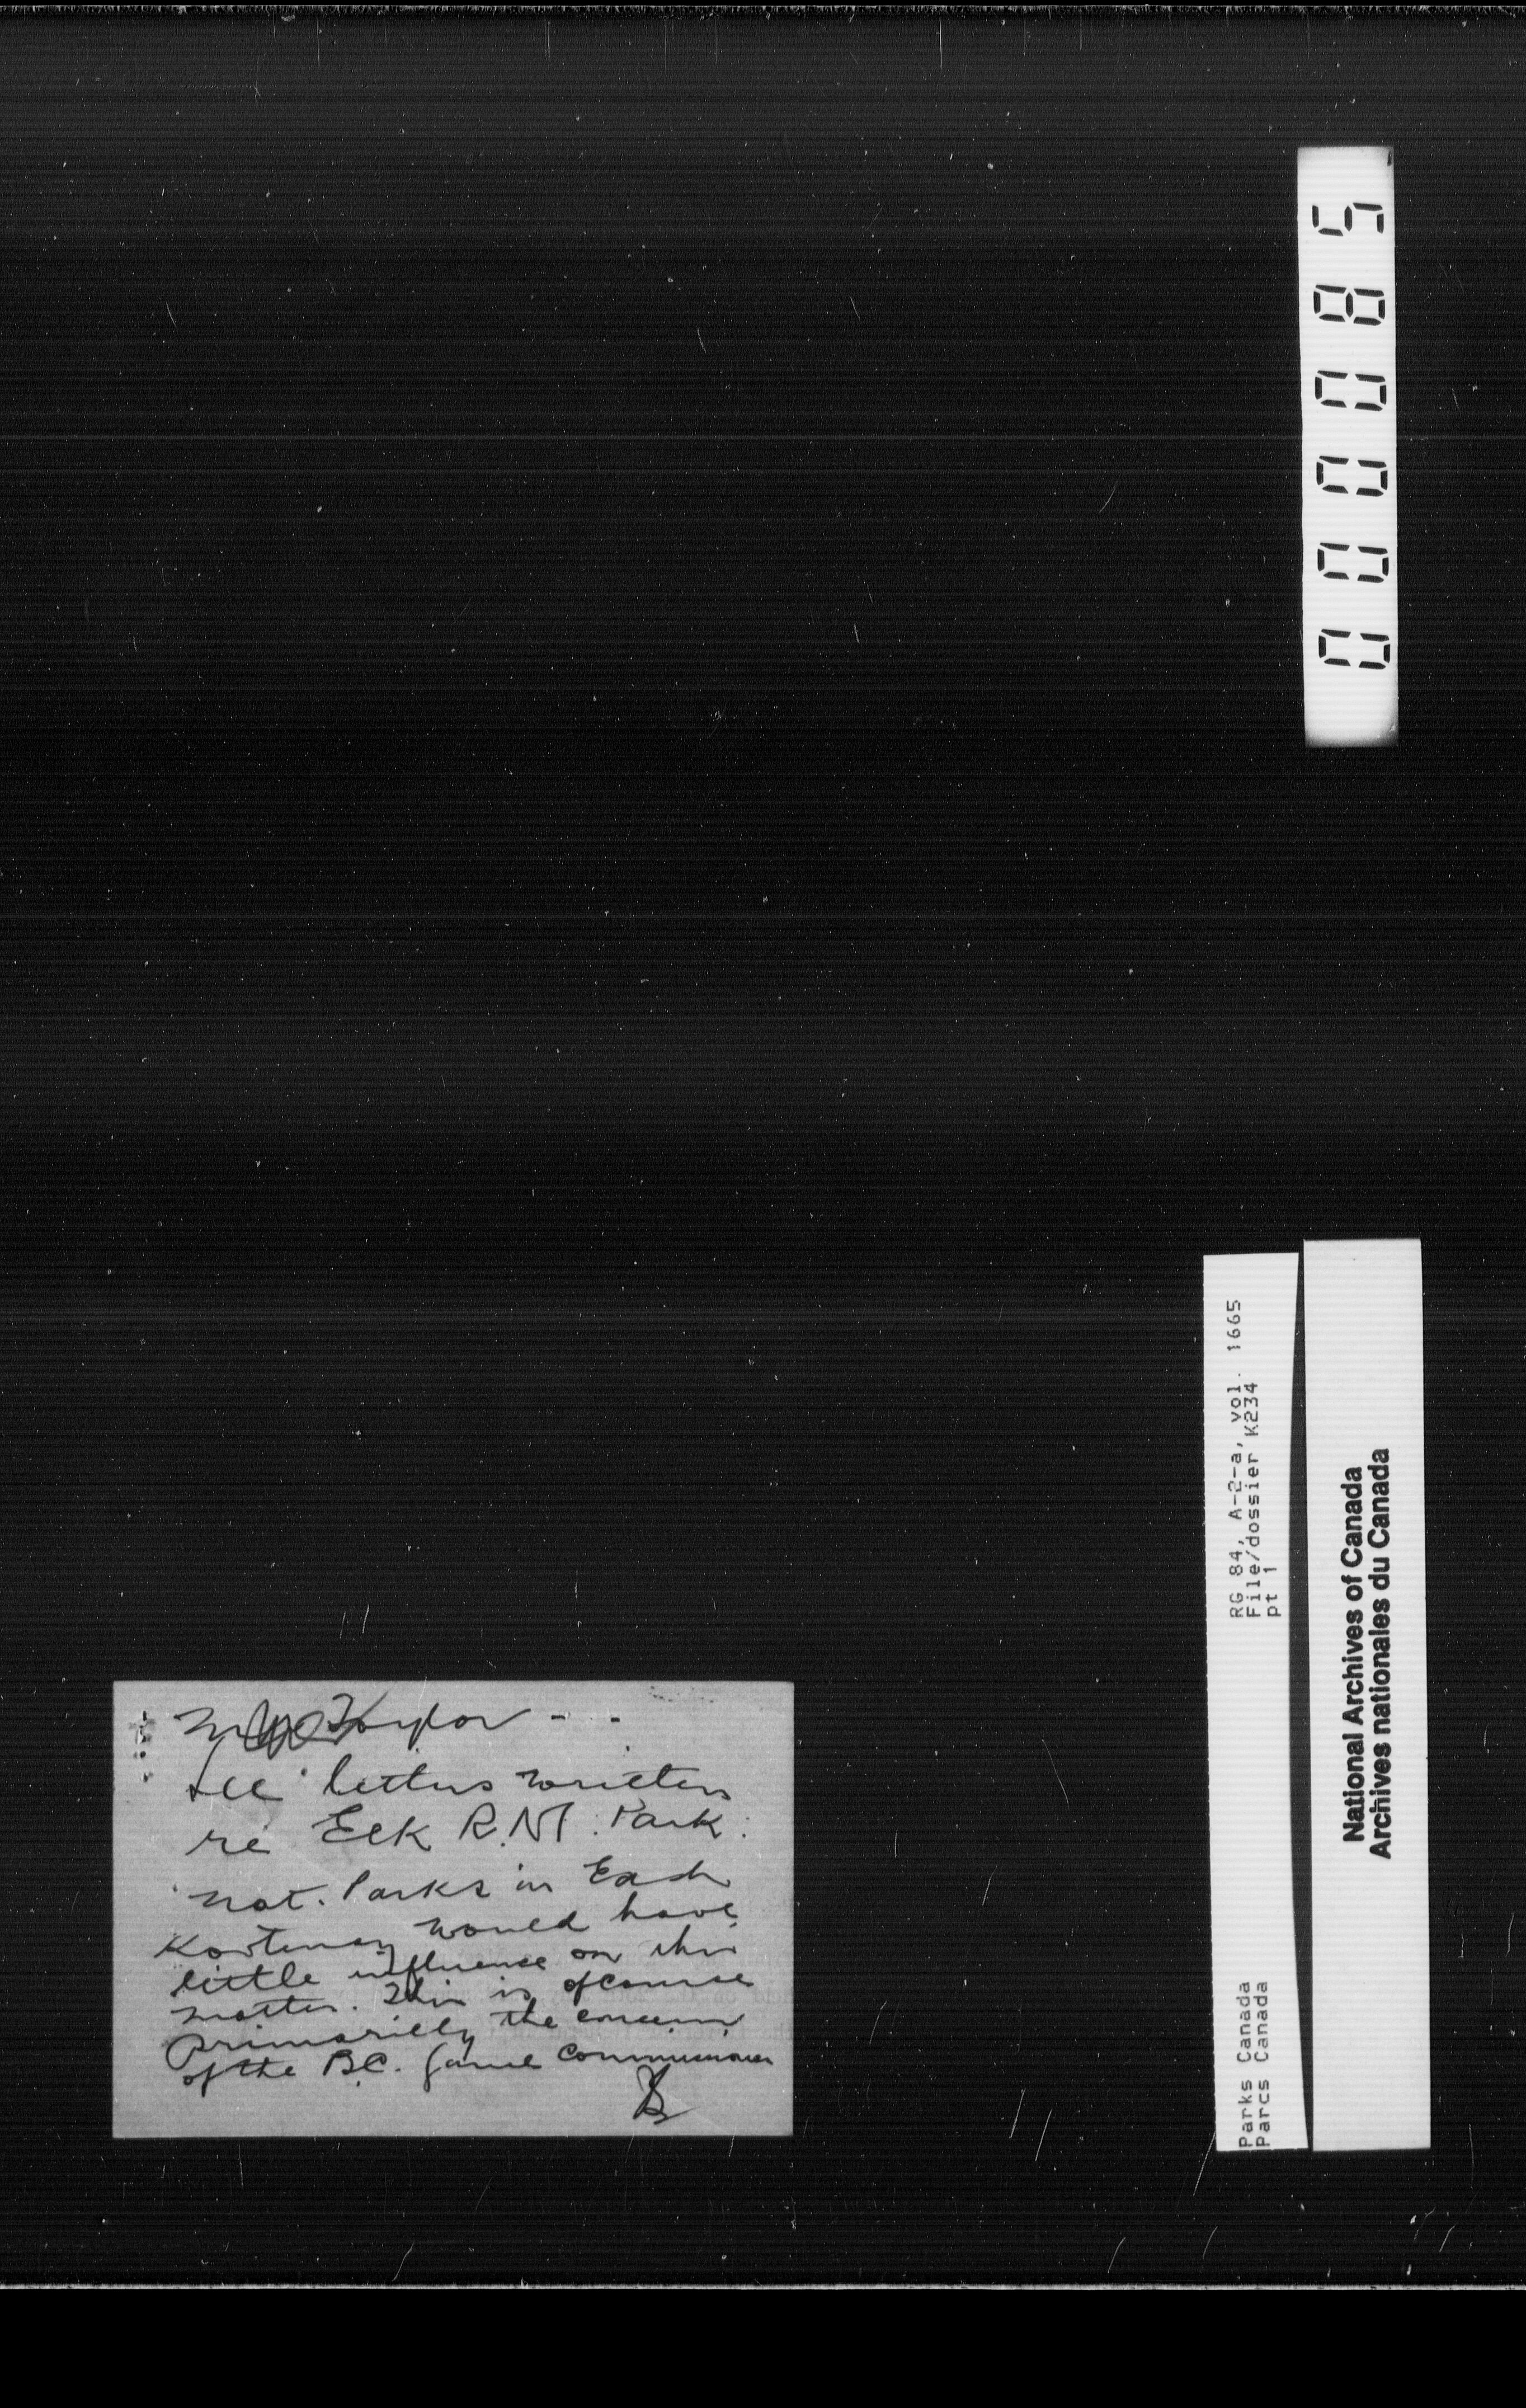 000085
RG 84, A-2-a, vol. 1665
File/dossier K234
pt 1
Parks Canada
Parcs Canada
National Archives of Canada
Archives nationales du Canada
Mr Taylor - -
See letters written
re Elk R. Nt. Park.
Nat. Parks in East
Kootenay would have
little influence on this
matter. This is of course
primarilly the concern
of the B.C. Game Commissioner